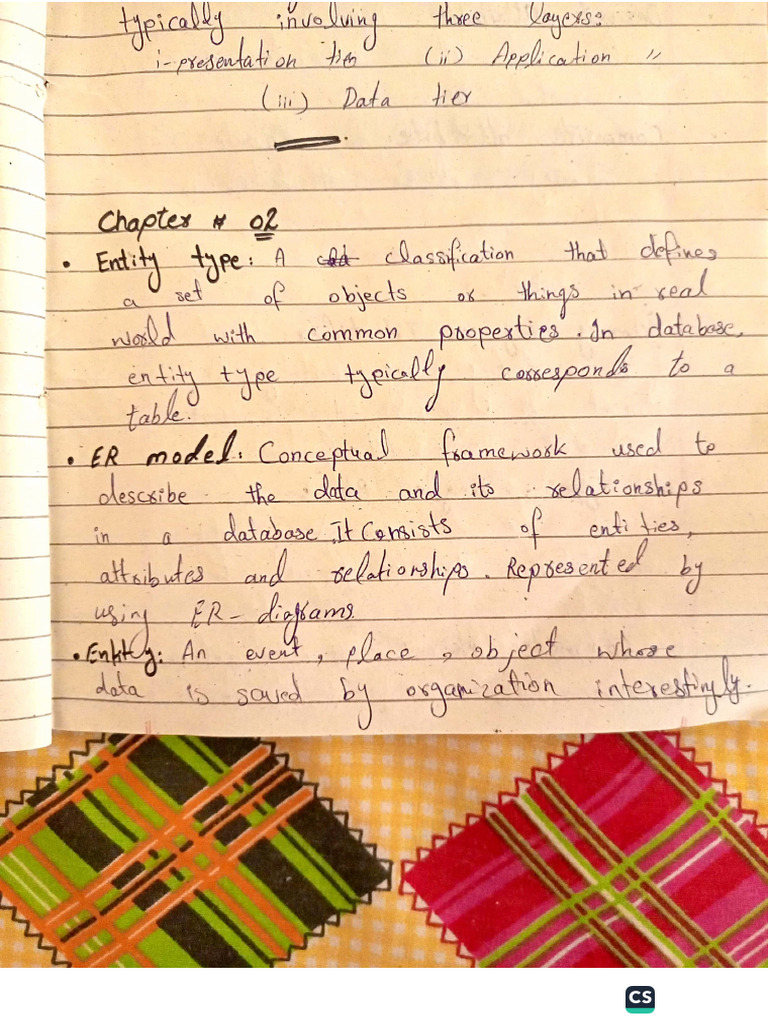 typically involving three layers:
i-presentation tier (ii) Application "
(iii) Data tier
Chapter # 02
• Entity type: A classification that defines
a set of objects or things in real
world with common properties. In database,
entity type typically corresponds to a
table.
• ER model: Conceptual framework used to
describe the data and its relationships
in a database. It Consists of entities,
attributes and relationships. Represented by
using ER-diagrams.
• Entity: An event, place, object whose
data is saved by organization interestingly.
CS